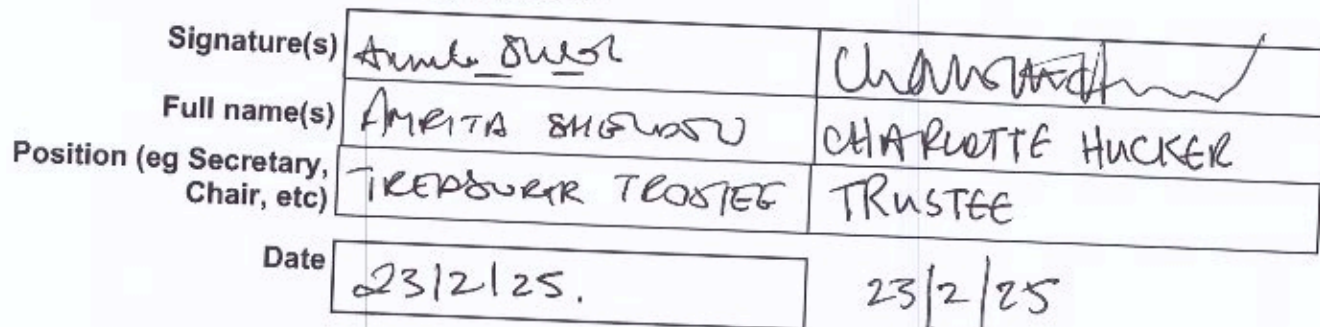 Signature(s)
Full name(s) AMRITA CHARLOTTE HUCKER
Position (eg Secretary,
Chair, etc) TREASURER TRUSTEE TRUSTEE
Date 23/2/25. 23/2/25